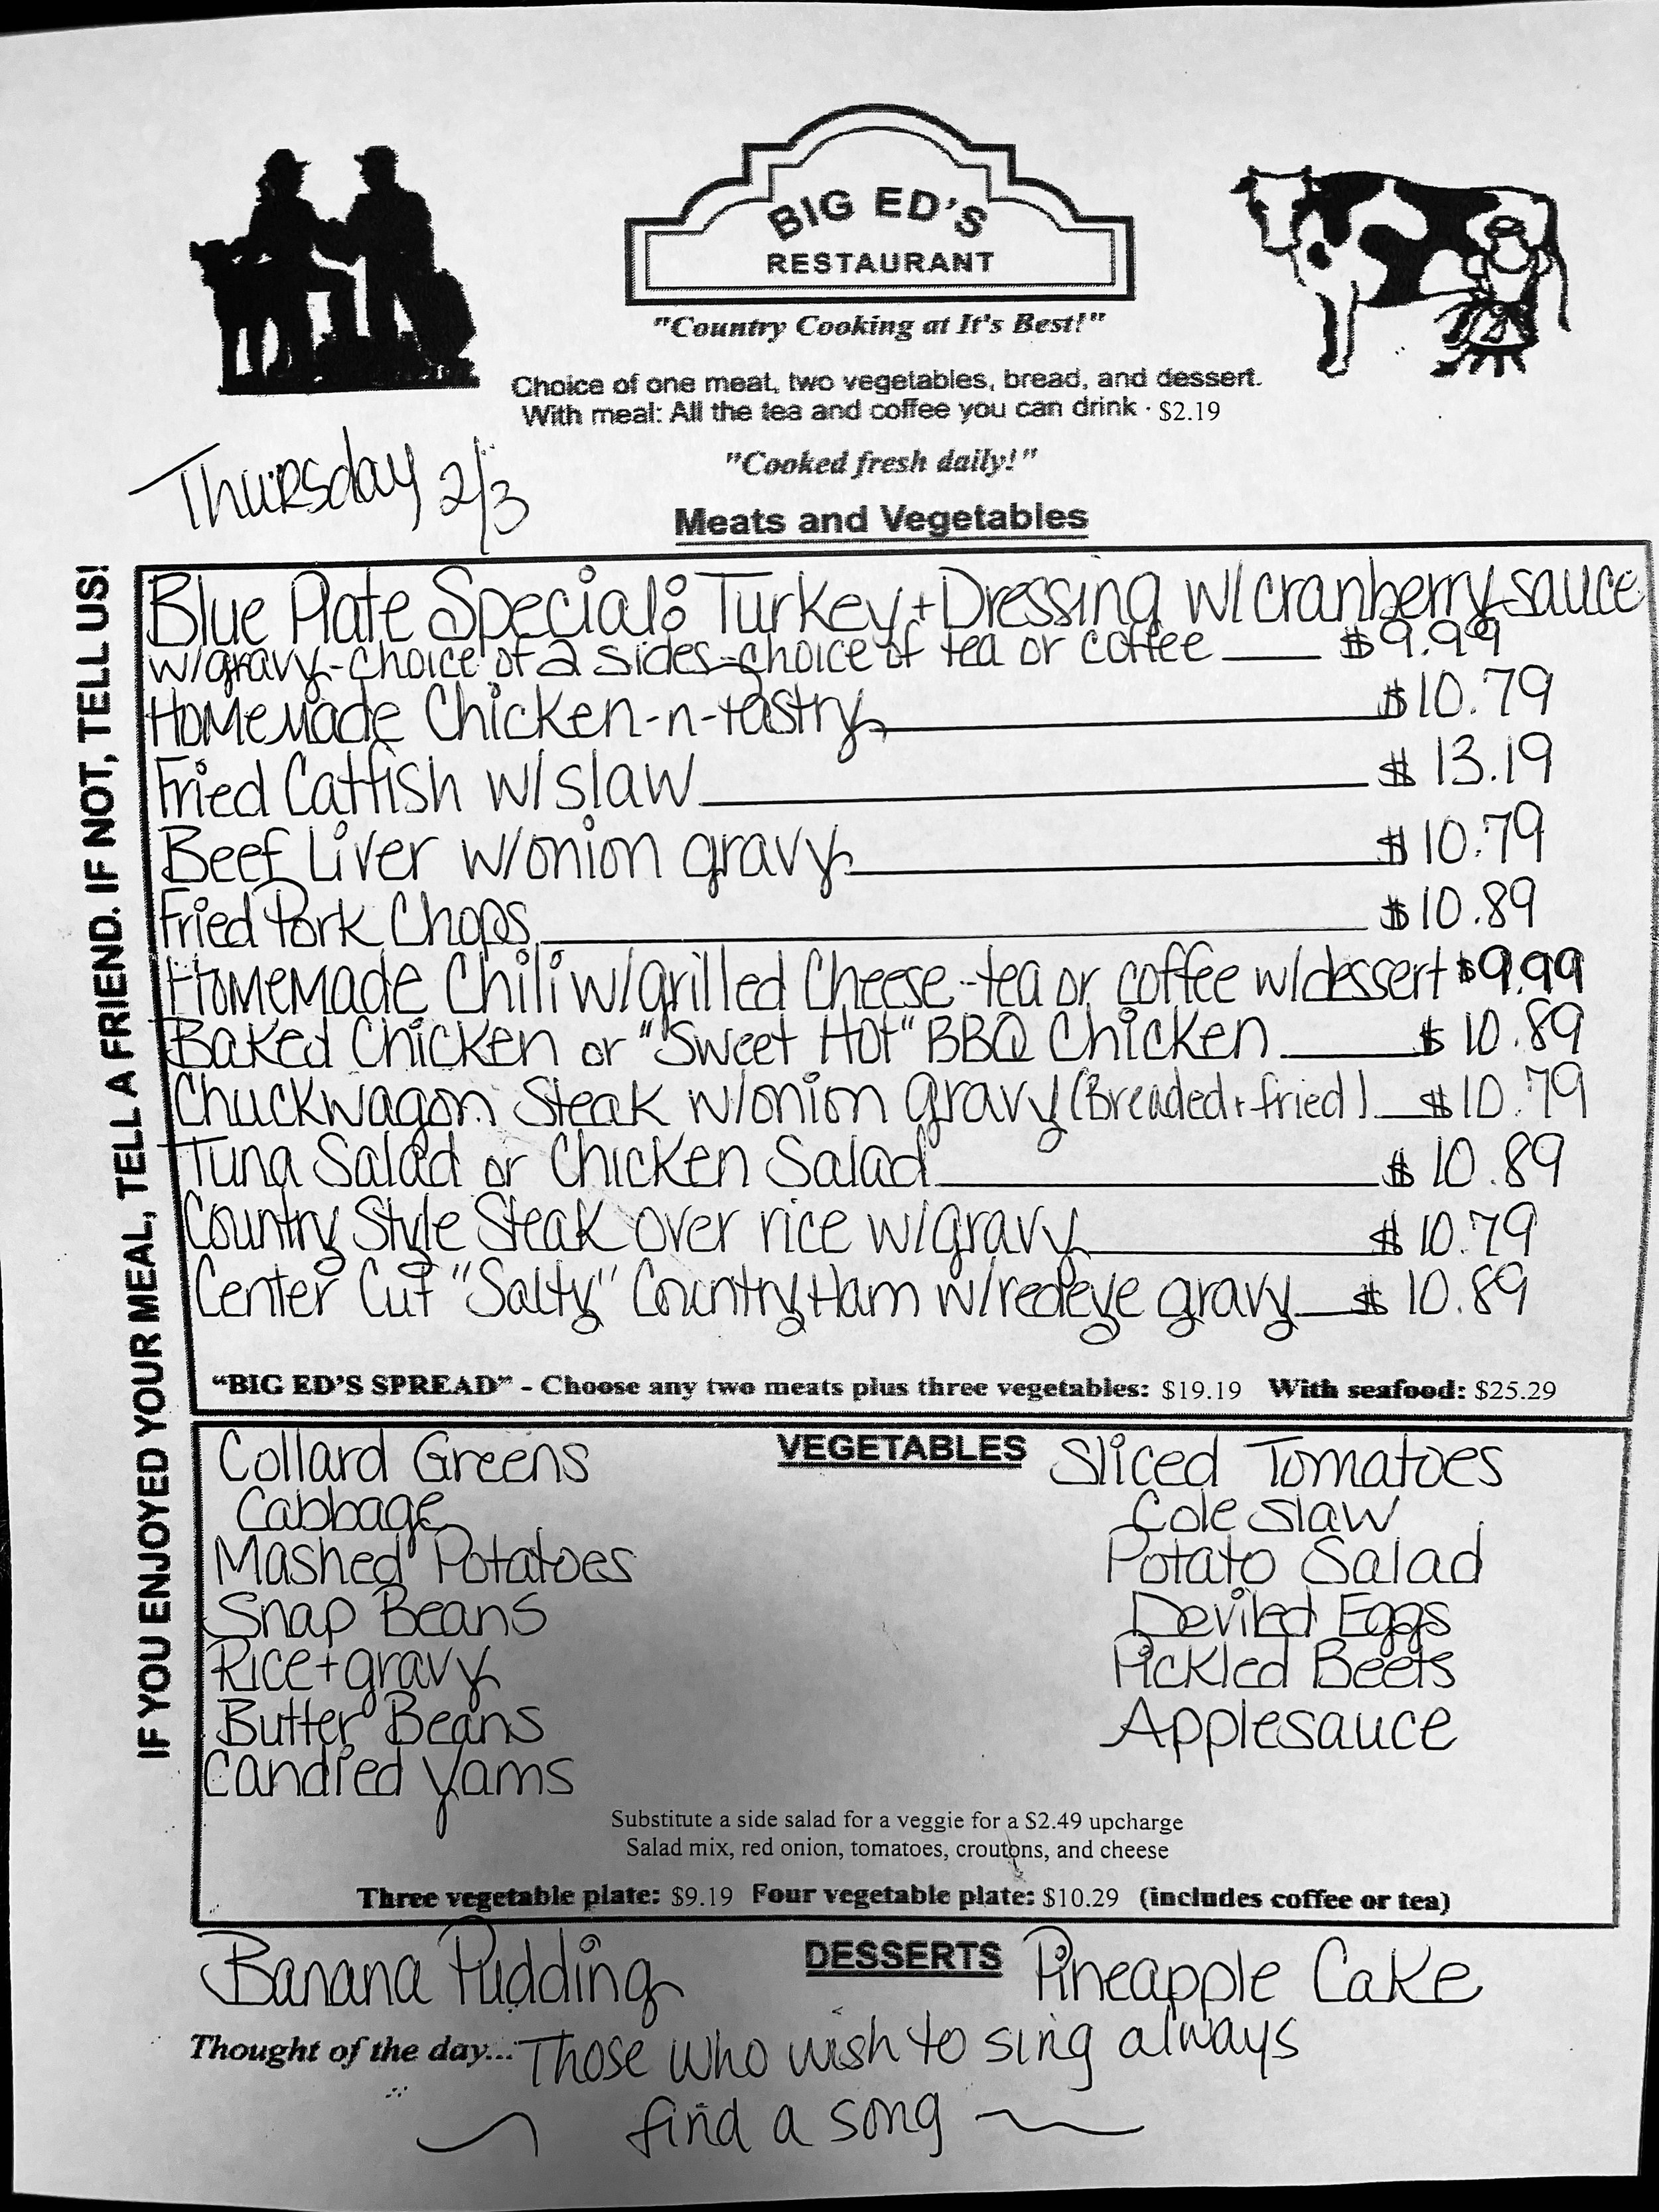 BIG ED'S
RESTAURANT
"Country Cooking at It's Best!"
Choice of one meat, two vegetables, bread, and dessert.
With meal: All the tea and coffee you can drink · $2.19
"Cooked fresh daily!"
Thursday 2/3
Meats and Vegetables
IF YOU ENJOYED YOUR MEAL, TELL A FRIEND. IF NOT, TELL US!
Blue Plate Special: Turkey + Dressing w/cranberry sauce
w/gravy-choice of 2 sides-choice of tea or coffee $9.99
Homemade Chicken-n-Pastry $10.79
Fried Catfish w/slaw $13.19
Beef Liver w/onion gravy $10.79
Fried Pork Chops $10.89
Homemade Chili w/grilled Cheese-tea or coffee w/dessert $9.99
Baked Chicken or "Sweet Hot" BBQ Chicken $10.89
Chuckwagon Steak w/onion gravy (Breaded + fried) $10.79
Tuna Salad or Chicken Salad $10.89
Country Style Steak over rice w/gravy $10.79
Center Cut "Salty" Country Ham w/redeye gravy $10.89
"BIG ED'S SPREAD" - Choose any two meats plus three vegetables: $19.19 With seafood: $25.29
VEGETABLES
Collard Greens
Cabbage
Mashed Potatoes
Snap Beans
Rice + gravy
Butter Beans
Candied Yams
Sliced Tomatoes
Cole Slaw
Potato Salad
Deviled Eggs
Pickled Beets
Applesauce
Substitute a side salad for a veggie for a $2.49 upcharge
Salad mix, red onion, tomatoes, croutons, and cheese
Three vegetable plate: $9.19 Four vegetable plate: $10.29 (includes coffee or tea)
DESSERTS
Banana Pudding
Pineapple Cake
Thought of the day... Those who wish to sing always
find a song